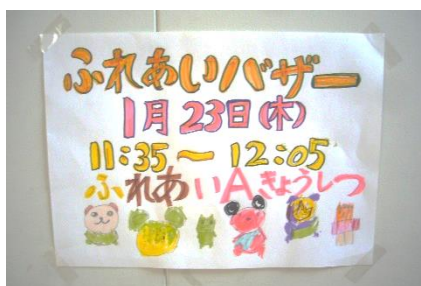 ふれあいバザー
1月23日(木)
11:35～12:05
ふれあいAきょうしつ